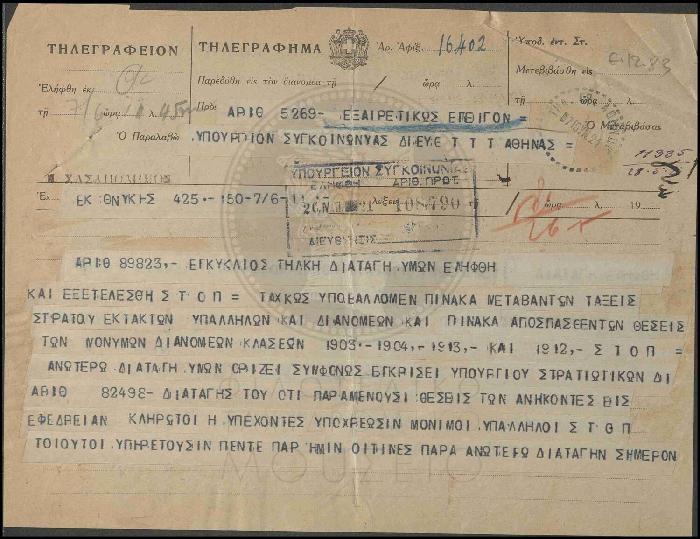 ΤΗΛΕΓΡΑΦΕΙΟΝ
ΤΗΛΕΓΡΑΦΗΜΑ
Αρ. Αφίξ. 16402
Ὑποδ. ἐντ. Στ.
Ἐλήφθη ἐκ
Παρεδόθη εἰς τὸν διανομέα τῇ / ὥρα λ.
Μετεβιβάσθη εἰς
τῇ ὥρα λ.
τῇ ὥρα λ.
Ὁ Παραλαβὼν
Ὁ Μεταβιβάσας
Πρὸς
ΑΡΙΘ 5269- ΕΞΑΙΡΕΤΙΚΩΣ ΕΠΕΙΓΟΝ =
ΥΠΟΥΡΓΙΟΝ ΣΥΓΚΟΙΝΩΝΥΑΣ ΔΙΕΥΕ Τ Τ Τ ΑΘΗΝΑΣ =
11985
ΥΠΟΥΡΓΕΙΟΝ ΣΥΓΚΟΙΝΩΝΙΑΣ
ΕΛΗΦΘΗ ΑΡΙΘ. ΠΡΩΤ.
108790
ΔΙΕΥΘΥΝΣΙΣ
ΕΚ ΘΝΥΚΗΣ 425.- 150-7/6-
λέξεις
ὥρα λ. 19
ΑΡΙΘ 89823,- ΕΓΚΥΚΛΙΟΣ ΤΗΛΚΗ ΔΙΑΤΑΓΗ ΥΜΩΝ ΕΛΗΦΘΗ
ΚΑΙ ΕΞΕΤΕΛΕΣΘΗ Σ Τ Ο Π = ΤΑΧΚΩΣ ΥΠΟΒΑΛΛΟΜΕΝ ΠΙΝΑΚΑ ΜΕΤΑΒΑΝΤΩΝ ΤΑΞΕΙΣ
ΣΤΡΑΤΟΥ ΕΚΤΑΚΤΩΝ ΥΠΑΛΛΗΛΩΝ ΚΑΙ ΔΙΑΝΟΜΕΩΝ ΚΑΙ ΠΙΝΑΚΑ ΑΠΟΣΠΑΣΘΕΝΤΩΝ ΘΕΣΕΙΣ
ΤΩΝ ΜΟΝΥΜΩΝ ΔΙΑΝΟΜΕΩΝ ΚΛΑΣΕΩΝ 1903.- 1904,- 1913,- ΚΑΙ 1912,- Σ Τ Ο Π =
ΑΝΩΤΕΡΩ ΔΙΑΤΑΓΗ ΥΜΩΝ ΟΡΙΖΕΙ ΣΥΜΦΩΝΟΣ ΕΓΚΡΙΣΕΙ ΥΠΟΥΡΓΙΟΥ ΣΤΡΑΤΙΩΤΙΚΩΝ ΔΙ
ΑΡΙΘ 82498- ΔΙΑΤΑΓΗΣ ΤΟΥ ΟΤΙ ΠΑΡΑΜΕΝΟΥΣΙ ΘΕΣΕΙΣ ΤΩΝ ΑΝΗΚΟΝΤΕΣ ΕΙΣ
ΕΦΕΔΡΕΙΑΝ ΚΛΗΡΩΤΟΙ Η ΥΠΕΧΟΝΤΕΣ ΥΠΟΧΡΕΩΣΙΝ ΜΟΝΙΜΟΙ ΥΠΑΛΛΗΛΟΙ Σ Τ Θ Π
ΤΟΙΟΥΤΟΙ ΥΠΗΡΕΤΟΥΣΙΝ ΠΕΝΤΕ ΠΑΡ ΗΜΙΝ ΟΙΤΙΝΕΣ ΠΑΡΑ ΑΝΩΤΕΡΩ ΔΙΑΤΑΓΗΝ ΣΗΜΕΡΟΝ
ΜΟΥΣΕΙΟ